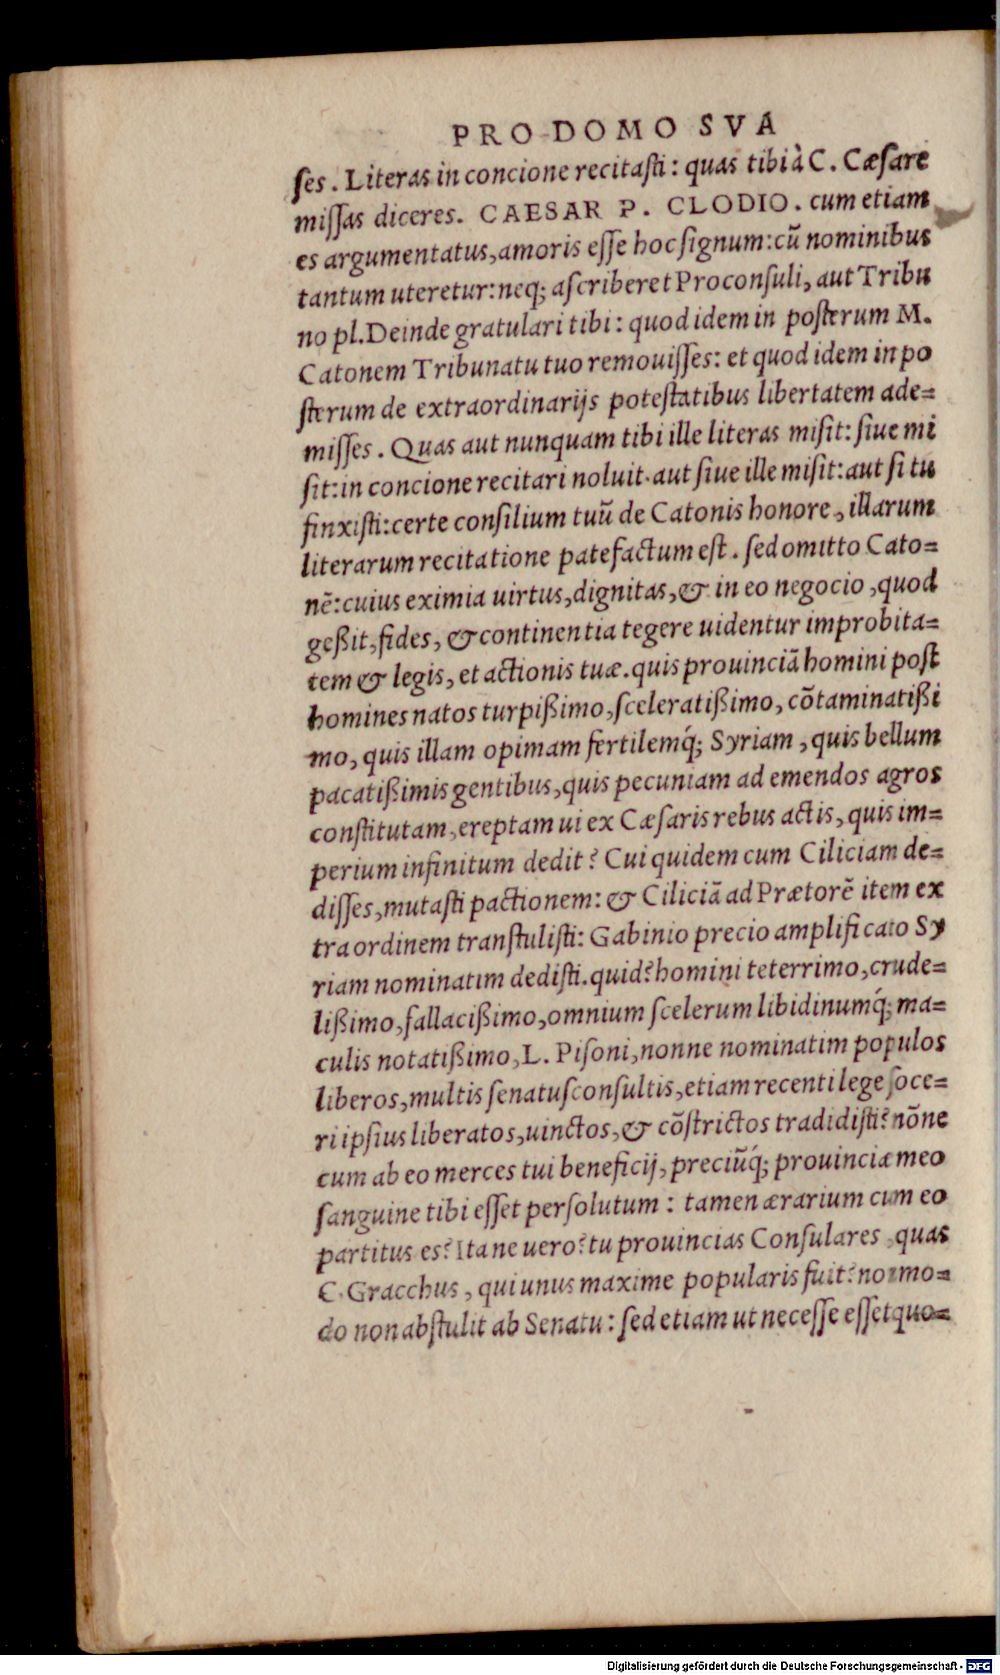 PRO DOMO SVA
ſes. Literas in concione recitaſti: quas tibi à C. Cæſare
miſſas diceres. CAESAR P. CLODIO. cum etiam
es argumentatus, amoris eſſe hoc ſignum: cũ nominibus
tantum uteretur: neq; aſcriberet Proconſuli, aut Tribu
no pl. Deinde gratulari tibi: quod idem in poſterum M.
Catonem Tribunatu tuo remouiſſes: et quod idem in po
ſterum de extraordinarijs poteſtatibus libertatem ade=
miſſes. Quas aut nunquam tibi ille literas miſit: ſiue mi
ſit: in concione recitari noluit. aut ſiue ille miſit: aut ſi tu
finxiſti: certe conſilium tuũ de Catonis honore, illarum
literarum recitatione patefactum eſt. ſed omitto Cato=
nẽ: cuius eximia uirtus, dignitas, & in eo negocio, quod
geßit, fides, & continentia tegere uidentur improbita=
tem & legis, et actionis tuæ. quis prouinciã homini poſt
homines natos turpißimo, ſceleratißimo, cõtaminatißi
mo, quis illam opimam fertilemq́; Syriam, quis bellum
pacatißimis gentibus, quis pecuniam ad emendos agros
conſtitutam, ereptam ui ex Cæſaris rebus actis, quis im=
perium infinitum dedit? Cui quidem cum Ciliciam de=
diſſes, mutaſti pactionem: & Ciliciã ad Prætorẽ item ex
tra ordinem tranſtuliſti: Gabinio precio amplificato Sy
riam nominatim dediſti. quid? homini teterrimo, crude=
lißimo, fallacißimo, omnium ſcelerum libidinumq́; ma=
culis notatißimo, L. Piſoni, nonne nominatim populos
liberos, multis ſenatuſconſultis, etiam recenti lege ſoce=
ri ipſius liberatos, uinctos, & cõſtrictos tradidiſti? nõne
cum ab eo merces tui beneficij, preciũq́; prouinciæ meo
ſanguine tibi eſſet perſolutum: tamen ærarium cum eo
partitus es? Itane uero? tu prouincias Conſulares, quas
C. Gracchus, qui unus maxime popularis fuit? non mo=
do non abſtulit ab Senatu: ſed etiam ut neceſſe eſſet quo=
Digitalisierung gefördert durch die Deutsche Forschungsgemeinschaft - DFG